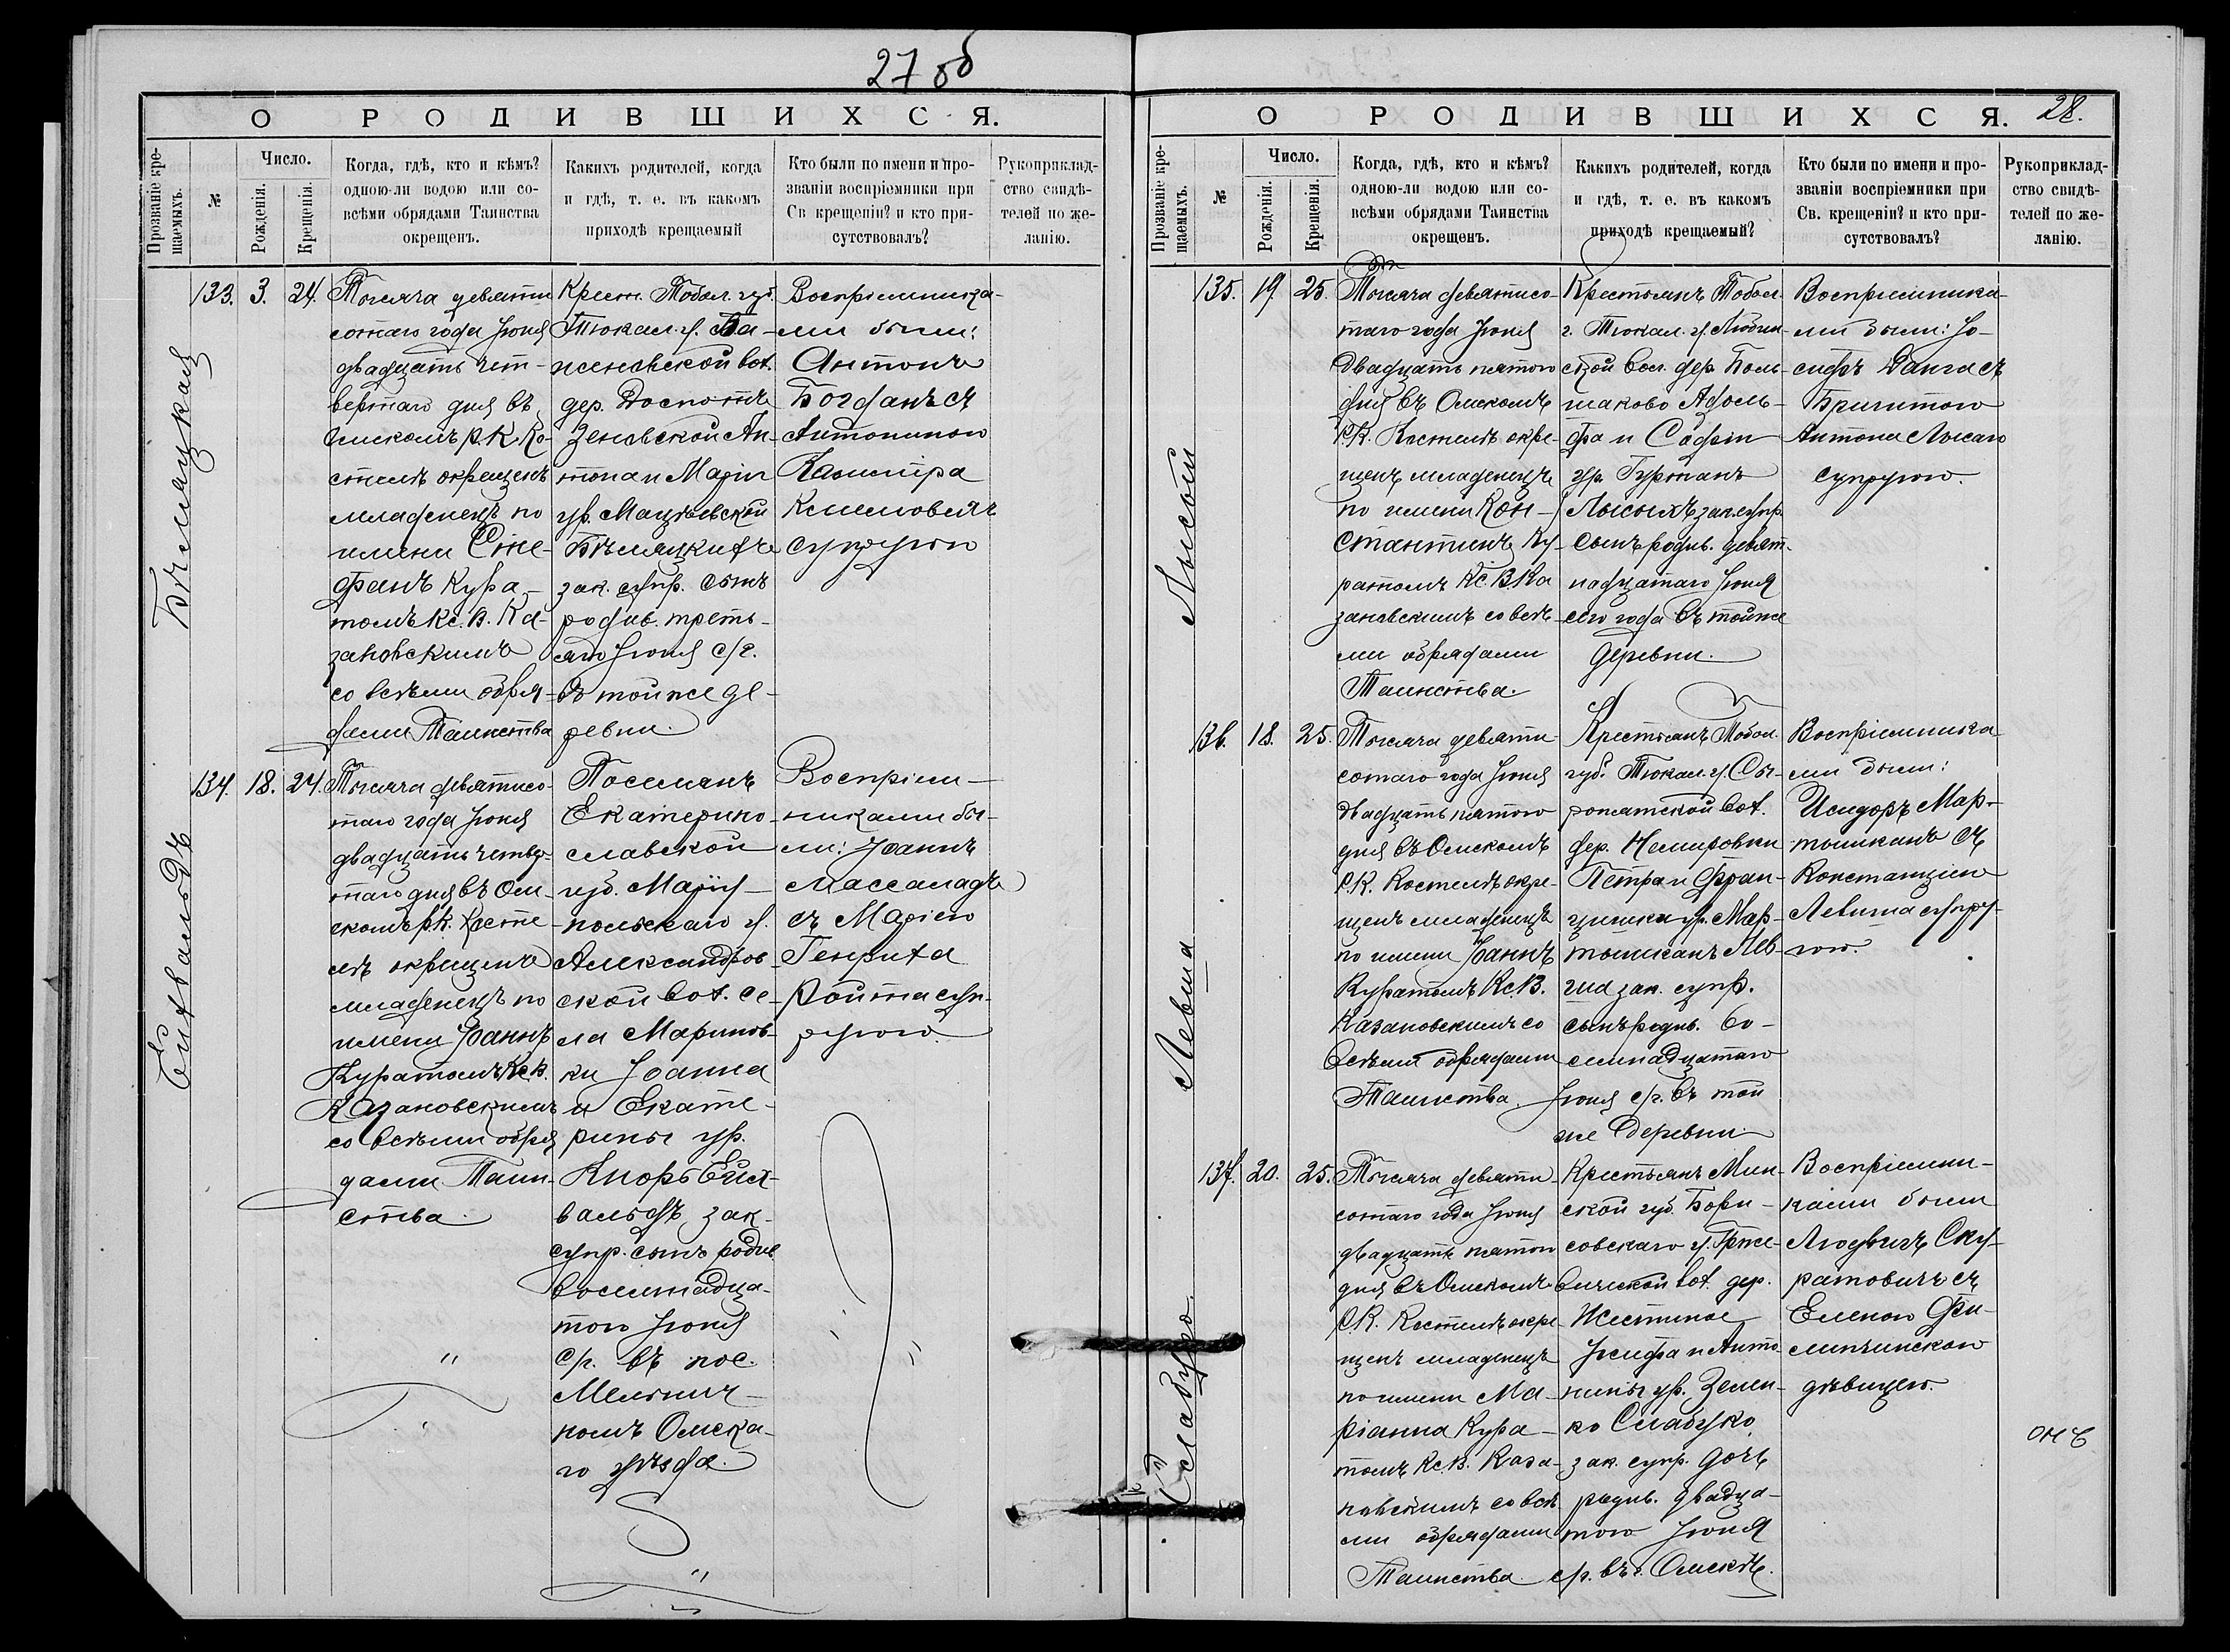 27 об
О РОДИВШИХСЯ.
Прозваніе кре-
щаемыхъ.
№
Число.
Рожденія.
Крещенія.
Когда, гдѣ, кто и кѣмъ?
одною-ли водою или со-
всѣми обрядами Таинства
окрещенъ.
Какихъ родителей, когда
и гдѣ, т. е. въ какомъ
приходѣ крещаемый
Кто были по имени и про-
званіи воспріемники при
Св крещеніи? и кто при-
сутствовалъ?
Рукоприклад-
ство свидѣ-
телей по же-
ланію.
133. 3. 24.
Тысяча девяти
сотаго года Іюня
двадцать чет-
вертаго дня въ
Омскомъ Р.К. Ко-
стелѣ окрещенъ
младенецъ по
имени Сте-
фанъ Кура-
томъ Кс. В. Ка-
зановскимъ
со всѣми обря-
дами Таинства
Крест. Тобол. губ.
Тюкал. у. Ба-
женовской вол.
дер.
Ан-
тона и Маріи
ур. Мацѣевской
зак. супр. сынъ
родив. треть-
яго Іюня с/г.
въ той же де-
ревни.
Воспріемника-
ми были:
Антонъ
Богданъ съ
Антониною
Казимира
Климовичъ
супругою
134. 18. 24.
Тысяча девятисо-
таго года Іюня
двадцать четвер-
таго дня въ Ом-
скомъ Р.К. Косте
лѣ окрещенъ
младенецъ по
имени Іоаннъ
Куратомъ Кс. В.
Казановскимъ
со всѣми обря
дами Таин-
ства.
Поселянъ
Екатерино-
славской
губ. Маріу-
польскаго у.
Александров-
ской вол. се-
ла Маринов-
ки Іоанна
и Екате-
рины ур.
Кноръ Ейх-
вальдъ зак.
супр. сынъ родив
восемнадца-
того Іюня
с/г. въ пос.
Мельнич-
номъ Омска-
го уѣзда.
Воспріем-
никами бы-
ли: Іоаннъ
Массаладъ
съ Маріею
Генриха
Ройта суп-
ругою.
Ейхвальдъ
28.
О РОДИВШИХСЯ.
Прозваніе кре-
щаемыхъ.
№
Число.
Рожденія.
Крещенія.
Когда, гдѣ, кто и кѣмъ?
одною-ли водою или со-
всѣми обрядами Таинства
окрещенъ.
Какихъ родителей, когда
и гдѣ, т. е. въ какомъ
приходѣ крещаемый?
Кто были по имени и про-
званіи воспріемники при
Св. крещеніи? и кто при-
сутствовалъ?
Рукоприклад-
ство свидѣ-
телей по же-
ланію.
135. 19. 25.
Тысяча девятисо-
таго года Іюня
двадцать пятого
дня въ Омскомъ
Р.К. Костелѣ окре-
щенъ младенецъ
по имени Кон-
стантинъ Ку-
ратомъ Кс. В. Ка
зановскимъ со всѣ-
ми обрядами
Таинства.
Крестьянъ Тобол.
г. Тюкал. у. Любин-
ской вол. дер. Боль-
шаково Адоль-
фа и Софіи
ур. Гурманъ
Лысыхъ зак. супр.
сынъ родив. девят-
надцатаго Іюня
сего года въ той же
деревни.
Воспріемника-
ми были: Іо-
сифъ Данга съ
Бригитою
Антона Лысаго
супругою.
Лысой
136. 18. 25.
Тысяча девяти-
сотаго года Іюня
двадцать пятого
дня въ Омскомъ
Р.К. Костелѣ окре-
щенъ младенецъ
по имени Іоаннъ
Куратомъ Кс. В.
Казановскимъ со
всѣми обрядами
Таинства.
Крестьянъ Тобол.
губ. Тюкал. у. Сы-
ропятской вол.
дер. Немировки
Петра и Фран-
цишки ур. Мар-
тышканъ Лев-
ша зак. супр.
сынъ родив. во-
семнадцатаго
Іюня с/г. въ той
же деревни.
Воспріемника
ми были:
Исидоръ Мар-
тышканъ съ
Констанціею
Левша супру-
гою.
Левша
137. 20. 25.
Тысяча девяти-
сотаго года Іюня
двадцать пятого
дня въ Омскомъ
Р.К. Костелѣ окре
щенъ младенецъ
по имени Ма-
ріанна Кура-
томъ Кс. В. Каза-
новскимъ со всѣ
ми обрядами
Таинства.
Крестьянъ Мин-
ской губ. Бори-
совскаго у.
вол. дер.
Іосифа и Анто-
нины ур. Зелен-
ко Слабуко
зак. супр. дочь
родив. двадца-
того Іюня
с/г. въ г. Омскѣ.
Воспріемни-
ками были
Людвигъ Ску-
ратовичъ съ
Еленою Фи-
липчинскою
дѣвицею.
Слабуко.